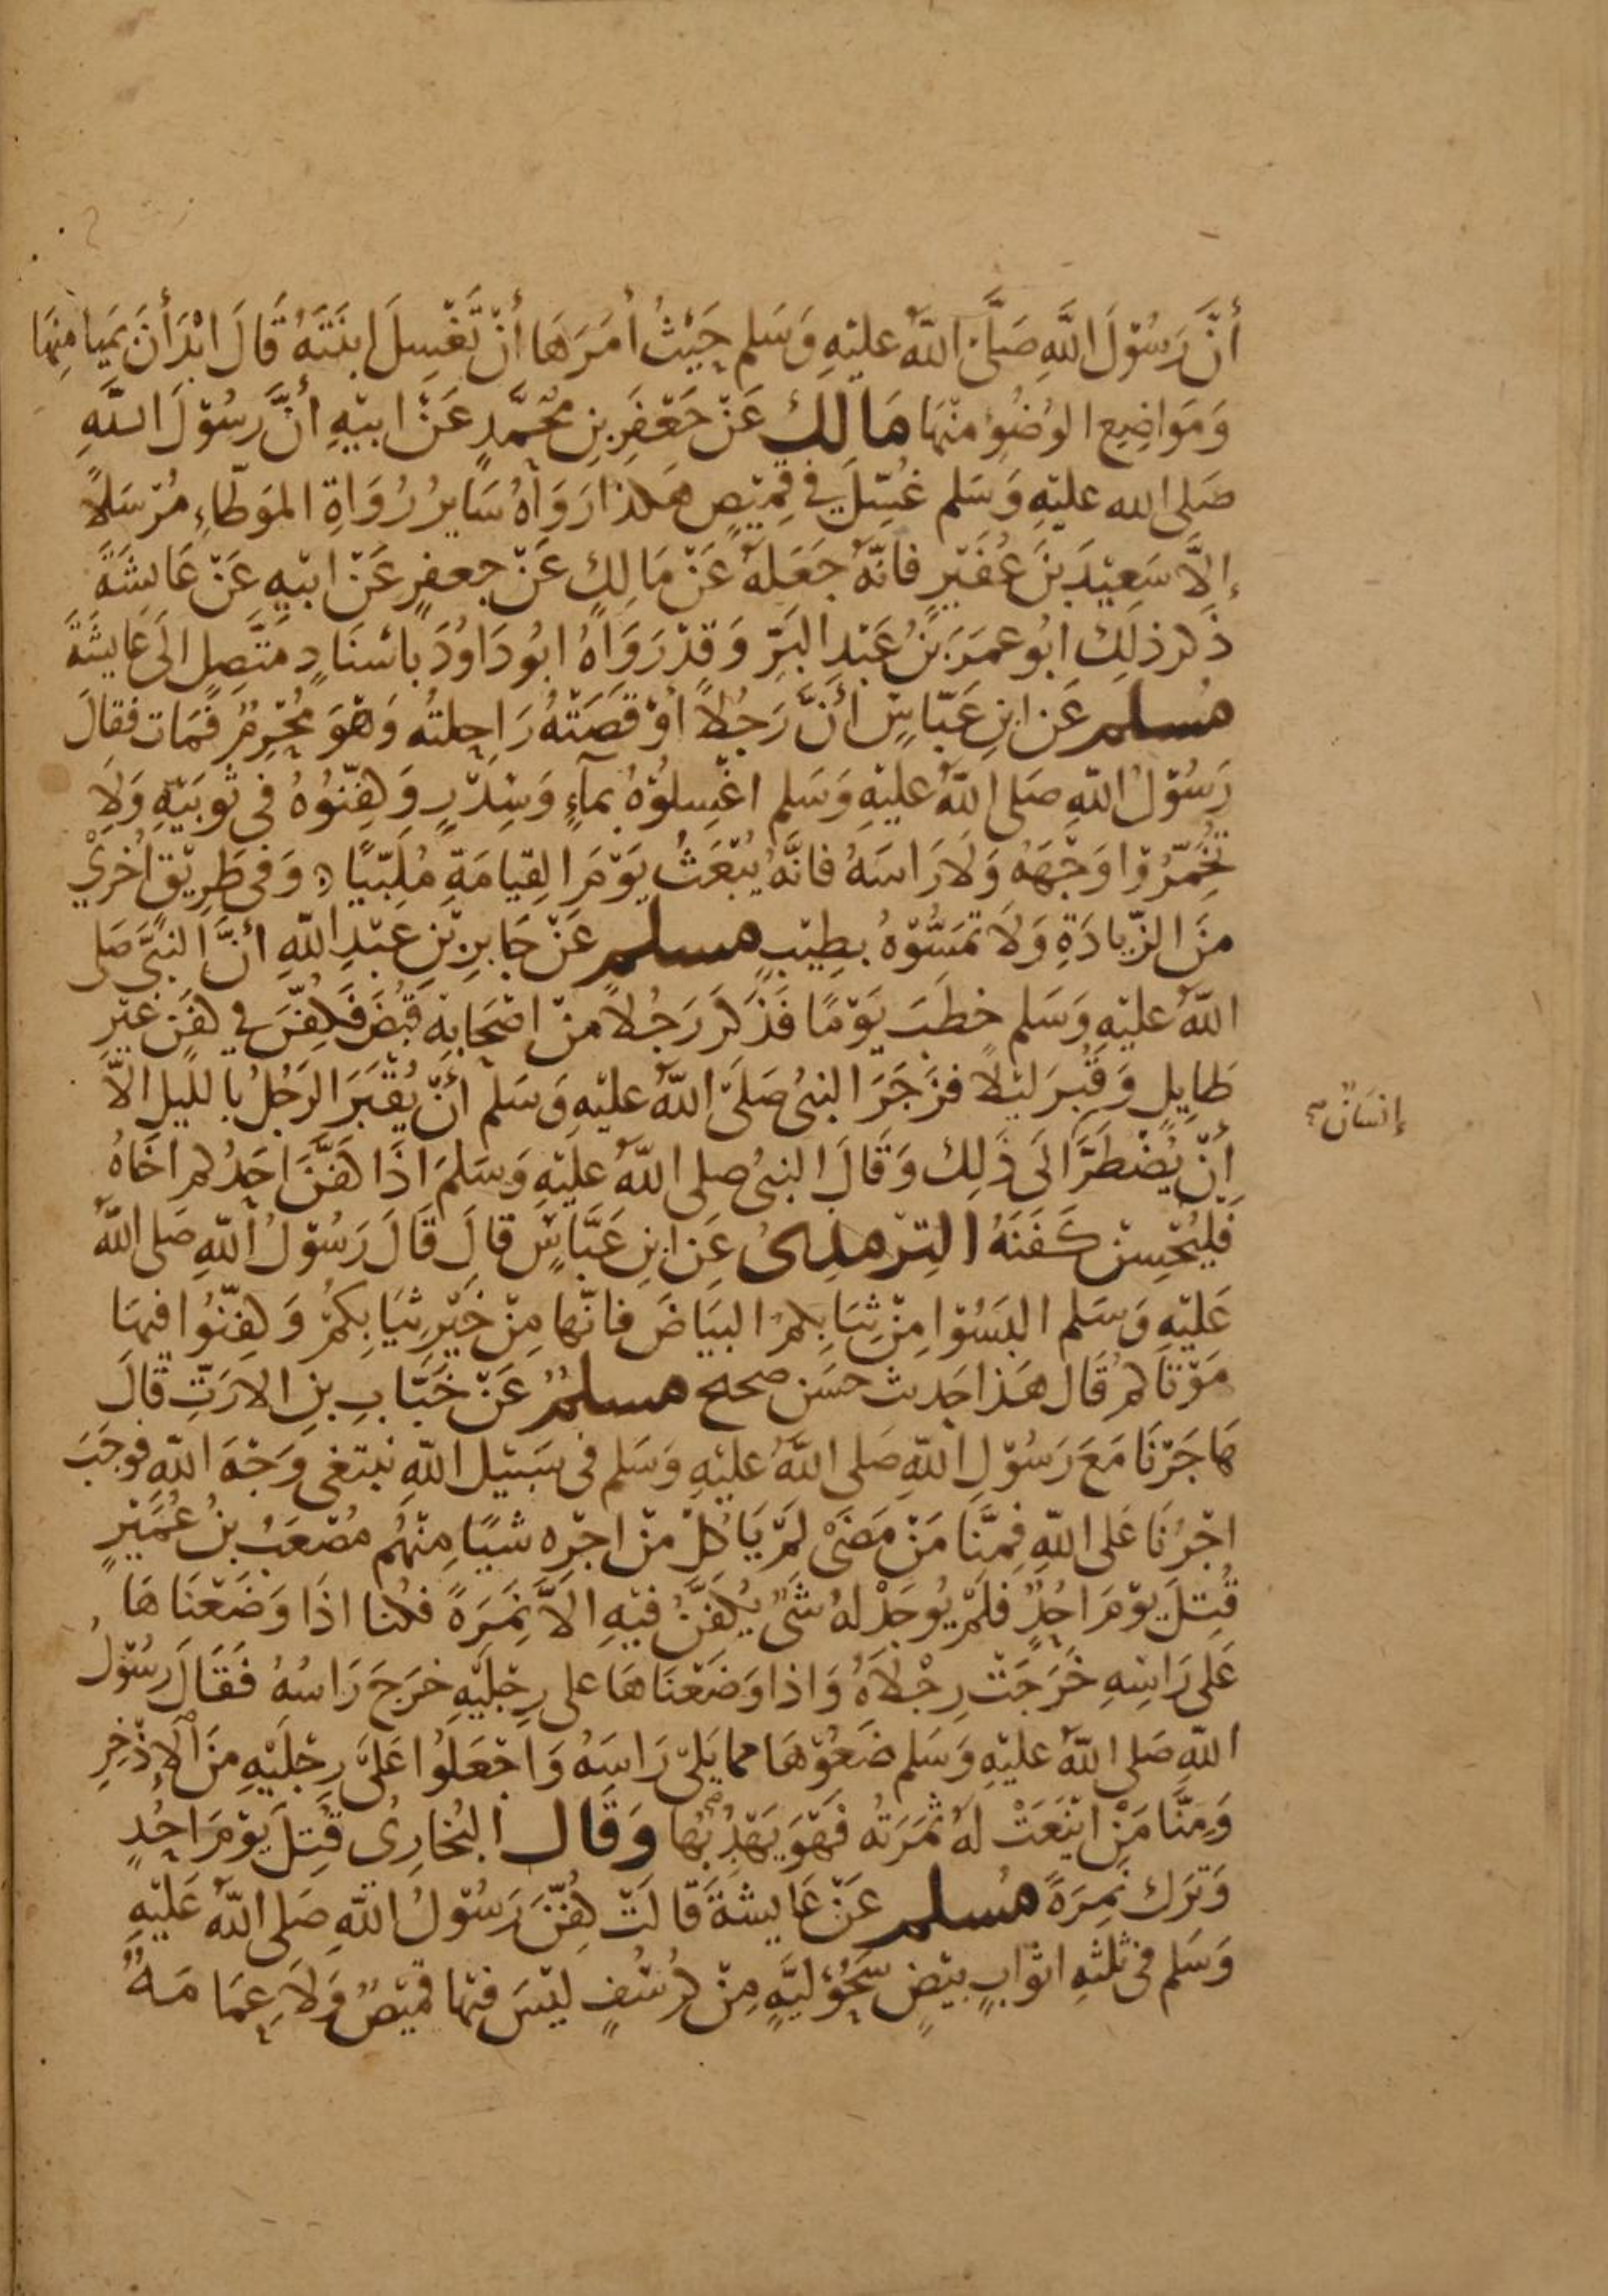 أَنَّ رَسُوْلَ اللَّهِ صَلَّى اللَّهُ عليْهِ وَسَلم حَيْثُ أمَرَهَا أنْ تَغْسِلَ ابنَتَهُ قَالَ ابْدَأنَ بمَيَامِنِهَا
وَمَوَاضِعِ الوُضُوءِ منْهَا مَالِكٌ عَنْ جَعْفَرِ بنِ محُمَّدٍ عَنْ ابيْهِ أنَّ رسُوْلَ اللَّهِ
صَلى الله عليْهِ وَسَلم غُسِّلَ في قمِيْصٍ هَكذا رَوَاهُ سَايرُ رُوَاةِ الموَطَّاءِ مُرْسَلاً
إلَّا سَعِيْدَ بنَ عُفَيْرٍ فَانَّهُ جَعَلَهُ عَنْ مَالِكٍ عَنْ جعفرٍ عَنْ ابيْهِ عَنْ عَايشَةَ
ذَكرَ ذلِكَ ابُو عمَرَ بْنُ عَبْدِ البَرِّ وَقدْ رَوَاهُ ابُو دَاوُدَ باسْنَادٍ متَّصِلٍ الَى عَايشَةَ
مُسلم عَن ابنِ عَبّاسٍ أنَّ رَجُلاً اوْقَصَتْهُ رَاحِلتُه وَهْوَ مُحْرِمٌ فَمَات فقالَ
رَسُوْلُ اللهِ صَلى اللهُ عليْهِ وَسَلم اغْسِلوْهُ بمآءٍ وَسِدْرٍ وَكفِّنُوُهُ في ثوبَيْهِ وَلا
تُخَمِّرُوْا وَجْهَهُ وَلَا رَاسَهُ فانَّهُ يُبْعَثُ يَوْمَ القِيَامَةِ مُلَبِّيًا وَفي طَرِيْقٍ أخْرَيْ
منَ الزِّيادَةِ وَلَا تمَسُّوْهُ بطِيْبٍ مسلم عَنْ جَابرِ بْنِ عبْدِ اللهِ أنَّ النَّبيَّ صَلى
اللهُ عليْهِ وَسَلم خطَبَ يَوْمًا فَذَكَرَ رَجُلاً منْ اصْحَابِهِ قُبضَ فَكفِّنَ في كفَنٍ غيْرِ
طَايِلٍ وَقُبرَ ليْلاً فزَجَرَ النبىُ صَلَى اللهُ عليْهِ وَسَلم أنْ يُقْبَرَ الرَجُلُ بالليلِ الاَّ
أنْ يُضْطَرَّ الَى ذَلِك وَقَالَ النبىُ صلى اللهُ عليْهِ وَسَلمَ اذَا كَفَّنَ احَدُكم اخَاهُ
فَلْيُحْسِنْ كَفَنَهُ التِرْمذِىُ عَن ابنِ عَبَّاسٍ قالَ قَالَ رَسُوْلُ اللهِ صَلى اللهُ
عَليْهِ وَسَلم البَسُوْا مِنْ ثيَابِكمُ البيَاضَ فانّها مِنْ خَيْرِ ثيَابكمْ وَكفِّنُوا فيهَا
مَوْتَاكمْ قَال هَذا حَديث حَسَن صحيح مسلمٌ عَنْ خَبَّابِ بنِ الارَتِّ قَالَ
هَاجَرْنَا مَعَ رَسُوْلِ اللهِ صَلى اللهُ عليْهِ وَسَلم في سَبيْلِ اللهِ نبتغي وَجْهَ اللهِ فوجَبَ
اجْرُنَا عَلى اللهِ فمِنَّا مَنْ مَضَىْ لمْ يَاكلْ منْ اجْرِه شيًا مِنْهُم مُصْعَبُ بنُ عُمَيْرٍ
قُتِلَ يوْمَ احُدٍ فلمْ يُوجَدْ لهُ شَىٌ يُكفَنُ فيْهِ الاَّ نمَرَةً فكُنا اذَا وَضَعْنَاهَا
عَلى رَاسِهِ خَرَجَتْ رِجْلاَهُ وَاذا وَضَعْنَاهَا على رِجْليْهِ خرَجَ رَاسُهُ فَقَالَ رسُوْلُ
اللهِ صَلى اللهُ عليْهِ وَسَلم ضَعُوْهَا مما يَلى رَاسَهُ وَاجْعَلوُا عَلَى رِجْليْهِ منَ الاِذْخِرِ
وَمنَّا مَنْ ايْنَعَتْ لهُ ثمَرَتهُ فَهْوَ يَهْدِبُهَا وَقَال البُخَارِىُ قُتِلَ يَوْمَ احُدٍ
وَترَك نمِرَةً مُسلم عَنْ عَايشةَ قَالَتْ كُفِّنَ رَسُوْلُ اللهِ صَلى اللهُ عَليْهِ
وَسَلم في ثلثةِ اثوَابٍ بيْضٍ سَحُوْليَّةٍ مِنْ كرْسُفٍ ليْسَ فيْهَا قميْصٌ وَلاَ عِمَامَةٌ
إنسَانٌ صح